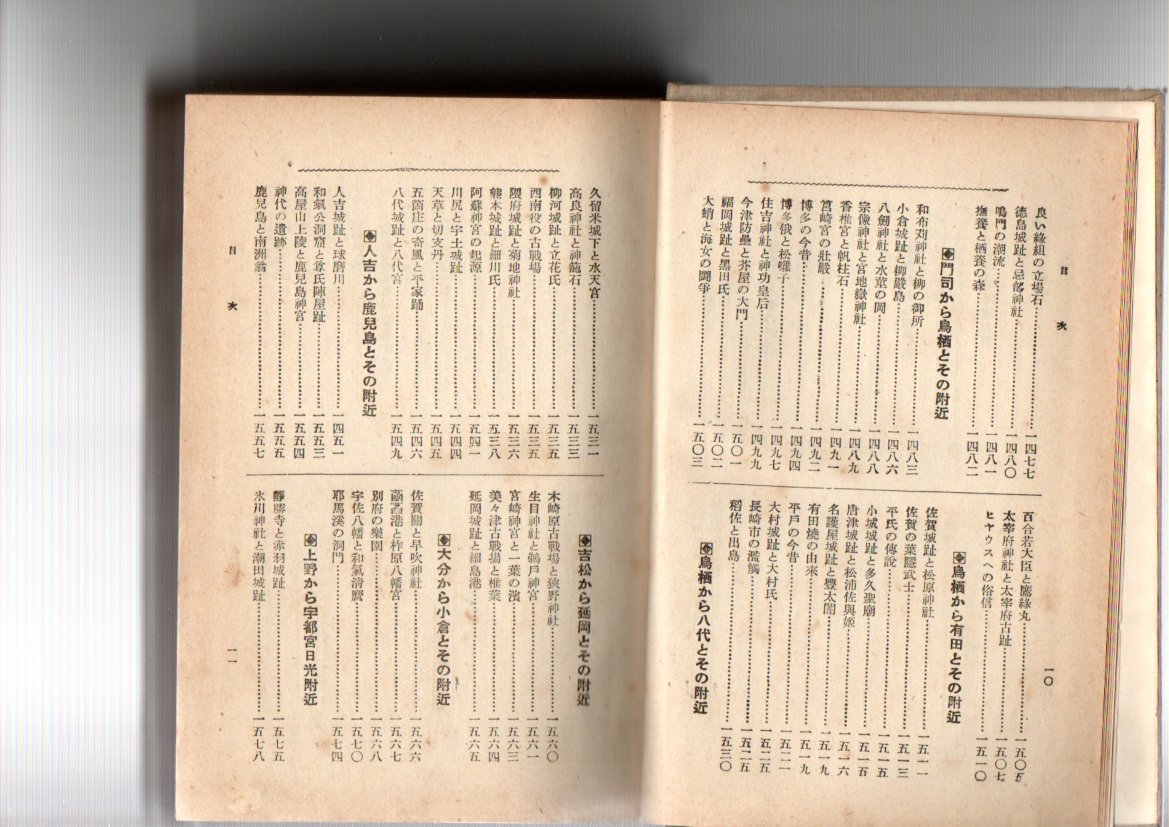 目次
良い緣組の立場石…一四七七
德島城趾と忌部神社…一四八〇
鳴門の潮流…一四八一
撫養と栖養の森…一四八二
◈門司から鳥栖とその附近
和布刈神社と柳の御所…一四八三
小倉城趾と柳嚴島…一四八六
八劍神社と水莖の岡…一四八八
宗像神社と宮地嶽神社…一四八九
香椎宮と帆柱石…一四九一
筥崎宮の壯嚴…一四九二
博多の今昔…一四九四
博多俄と松囃子…一四九七
住吉神社と神功皇后…一四九九
今津防壘と芥屋の大門…一五〇一
福岡城趾と黑田氏…一五〇二
大蛸と海女の鬪爭…一五〇三
百合若大臣と鷹綠丸…一五〇五
太宰府神社と太宰府古趾…一五〇七
ヒヤウスヘの俗信…一五一〇
◈鳥栖から有田とその附近
佐賀城趾と松原神社…一五一一
佐賀の葉隱武士…一五一三
平氏の傳說…一五一五
小城城趾と多久聖廟…一五一五
唐津城趾と松浦佐與姬…一五一六
名護屋城趾と豐太閤…一五一九
有田燒の由來…一五一九
平戶の今昔…一五二一
大村城趾と大村氏…一五二五
長崎市の濫觴…一五二五
稻佐と出島…一五三〇
◈鳥栖から八代とその附近
一〇
久留米城下と水天宮…一五三一
高良神社と神籠石…一五三三
柳河城趾と立花氏…一五三五
西南役の古戰場…一五三五
隈府城趾と菊地神社…一五三六
熊本城趾と細川氏…一五三八
阿蘇神宮の起源…一五四一
川尻と宇土城趾…一五四四
天草と切支丹…一五四五
五箇庄の奇風と平家踊…一五四六
八代城趾と八代宮…一五四九
◈人吉から鹿兒島とその附近
人吉城趾と球磨川…一四五一
和氣公洞窟と韋氏陣屋趾…一五五三
高屋山上陵と鹿兒島神宮…一五五四
神代の遺跡…一五五五
鹿兒島と南洲翁…一五五七
目次
◈吉松から延岡とその附近
木崎原古戰場と狹野神社…一五六〇
生目神社と鵜戶神宮…一五六一
宮崎神宮と一葉の濱…一五六三
美々津古戰場と椎葉…一五六四
延岡城趾と細島港…一五六五
◈大分から小倉とその附近
佐賀關と早吹神社…一五六六
菡萏港と柞原八幡宮…一五六七
別府の樂園…一五六八
宇佐八幡と和氣淸麿…一五七〇
耶馬溪の洞門…一五七四
◈上野から宇都宮日光附近
靜勝寺と赤羽城趾…一五七五
氷川神社と潮田城趾…一五七八
一一